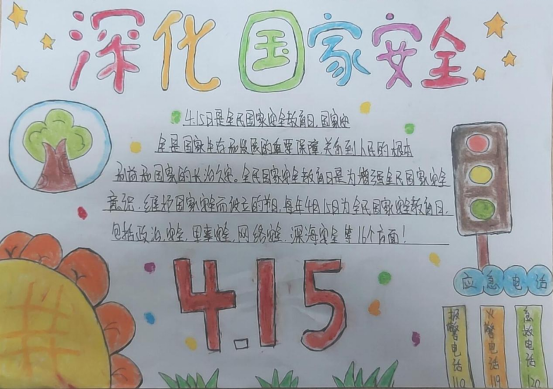 深化国家安全
4.15日是全民国家安全教育日,国家安
全是国家生存和发展的重要保障,关系到人民的根本
和国家的长治久安。全民国家安全教育日是为增强全民国家安全
意识,维护国家安全而设立的节日,每年4月15日为全民国家安全教育日,
包括政治安全、军事安全、网络安全、深海安全等16个方面!
4.15
应急电话
报警电话110
火警电话119
急救电话120